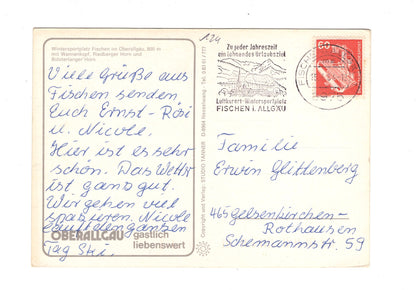 Wintersportplatz Fischen im Oberallgäu, 800 m
mit Wannenkopf, Riedberger Horn und
Bolsterlanger Horn
Viele Grüße aus
Fischen senden
Euch Ernst-Rosi
u. Nicole.
Hier ist es sehr
schön. Das Wetter
ist ganz gut.
Wir gehen viel
spazieren. Nicole
den ganzen
Tag Ski.
OBERALLGÄU gastlich
liebenswert
Copyright und Verlag: STUDIO TANNER
124
Zu jeder Jahreszeit
ein lohnendes Urlaubsziel
Luftkurort-Wintersportplatz
FISCHEN I. ALLGÄU
60
Familie
Erwin Glittenberg
465 Gelsenkirchen-
Rothausen
Schemannstr. 59